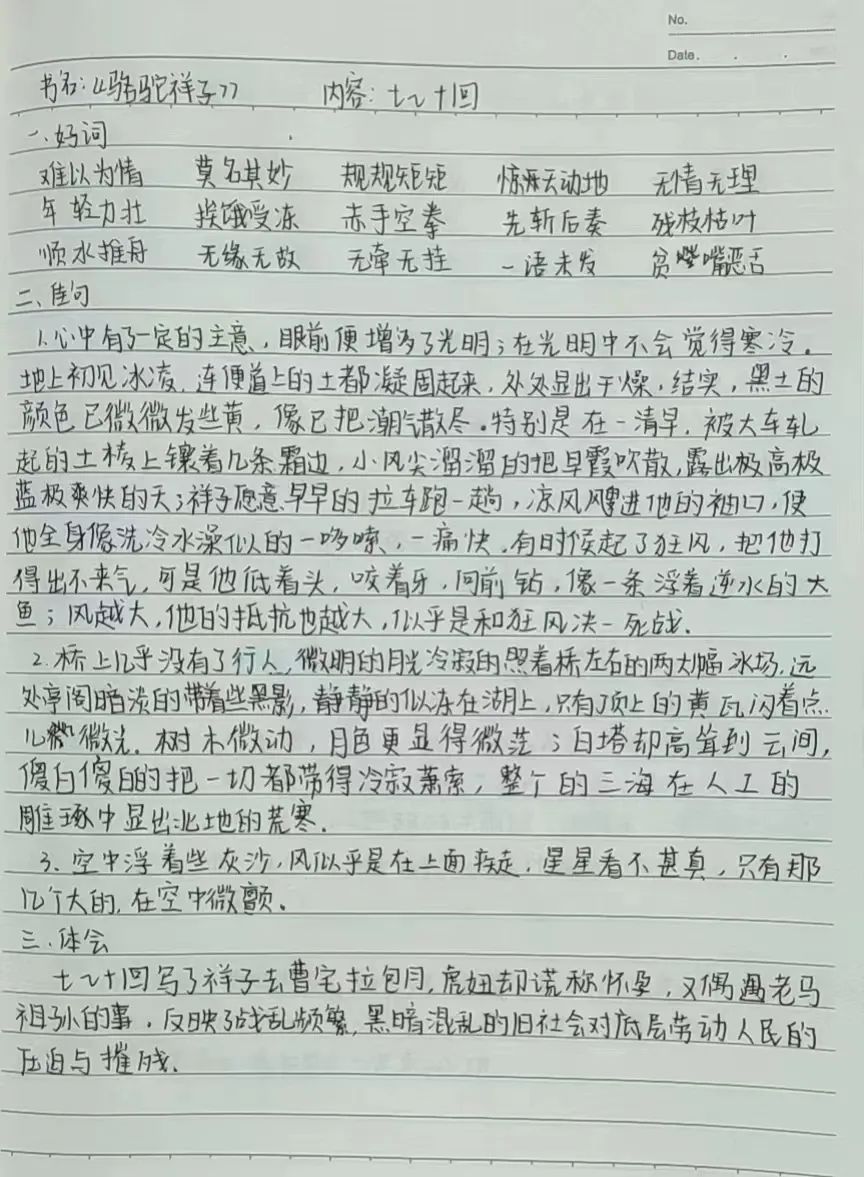 No.
Date. . .
书名:《骆驼祥子》 内容: 七~十回
一、好词
难以为情 莫名其妙 规规矩矩 惊天动地 无情无理
年轻力壮 挨饿受冻 赤手空拳 先斩后奏 残枝枯叶
顺水推舟 无缘无故 无牵无挂 一语未发 贫嘴恶舌
二、佳句
1.心中有了一定的主意,眼前便增多了光明;在光明中不会觉得寒冷。
地上初见冰凌,连便道上的土都凝固起来,处处显出干燥,结实,黑土的
颜色已微微发些黄,像已把潮气散尽。特别是在一清早,被大车轧
起的土棱上镶着几条霜边,小风尖溜溜的把早霞吹散,露出极高极
蓝极爽快的天;祥子愿意早早的拉车跑一趟,凉风飕进他的袖口,使
他全身像洗冷水澡似的一哆嗦,一痛快.有时候起了狂风,把他打
得出不来气,可是他低着头,咬着牙,向前钻,像一条浮着逆水的大
鱼;风越大,他的抵抗也越大,似乎是和狂风决一死战.
2.桥上几乎没有了行人,微明的月光冷寂的照着桥左右的两大幅冰场,远
处亭阁暗淡的带着些黑影,静静的似冻在湖上,只有顶上的黄瓦闪着点
儿微光.树木微动,月色更显得微茫;白塔却高耸到云间,
傻白傻白的把一切都带得冷寂萧索,整个的三海在人工的
雕琢中显出北地的荒寒.
3、空中浮着些灰沙,风似乎是在上面疾走,星星看不甚真,只有那
几个大的,在空中微颤。
三.体会
七~十回写了祥子去曹宅拉包月,虎妞却谎称怀孕,又偶遇老马
祖孙的事,反映了战乱频繁,黑暗混乱的旧社会对底层劳动人民的
压迫与摧残.